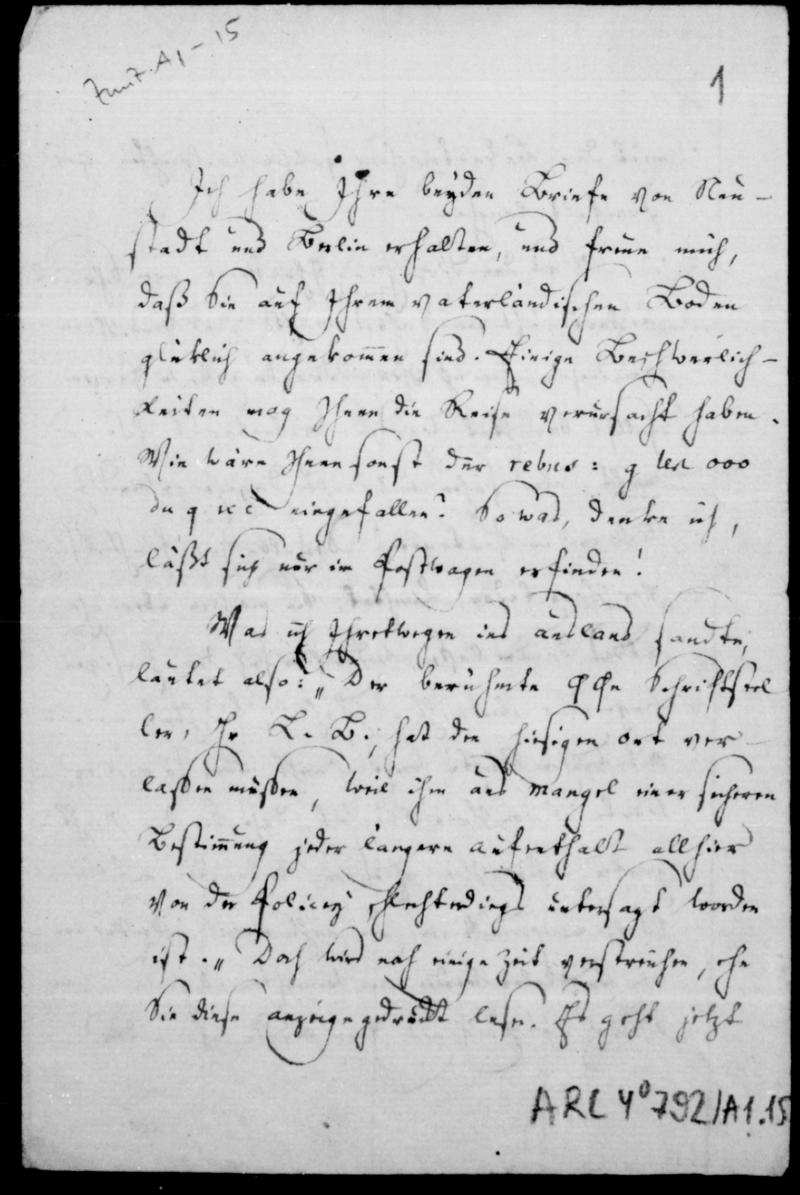 1
Ich habe Ihre beyden Briefe von Neu-
stadt und Berlin erhalten, und freue mich,
daß Sie auf Ihrem vaterländischen Boden
glüklich angekommen sind. Einige Beschwerlich-
keiten mag Ihnen die Reise verursacht haben.
Wie wäre Ihnen sonst der rebus: g 000
du q eingefallen? So was, denke ich,
läßt sich nur im Postwagen erfinden!
Was ich Ihretwegen ins Ausland sandte,
lautet also: „Der berühmte Schriftstel
ler, Hr L. B., hat den hiesigen Ort ver-
lassen müssen, weil ihm aus Mangel einer sicheren
Bestimung jeder längere Aufenthalt allhier
von der Policey schlechterdings untersagt worden
ist.„ Doch wird noch einige Zeit verstreichen, ehe
Sie diese Anzeige gedrukt lesen. Es geht jetzt
ARC 4° 792/A1.15